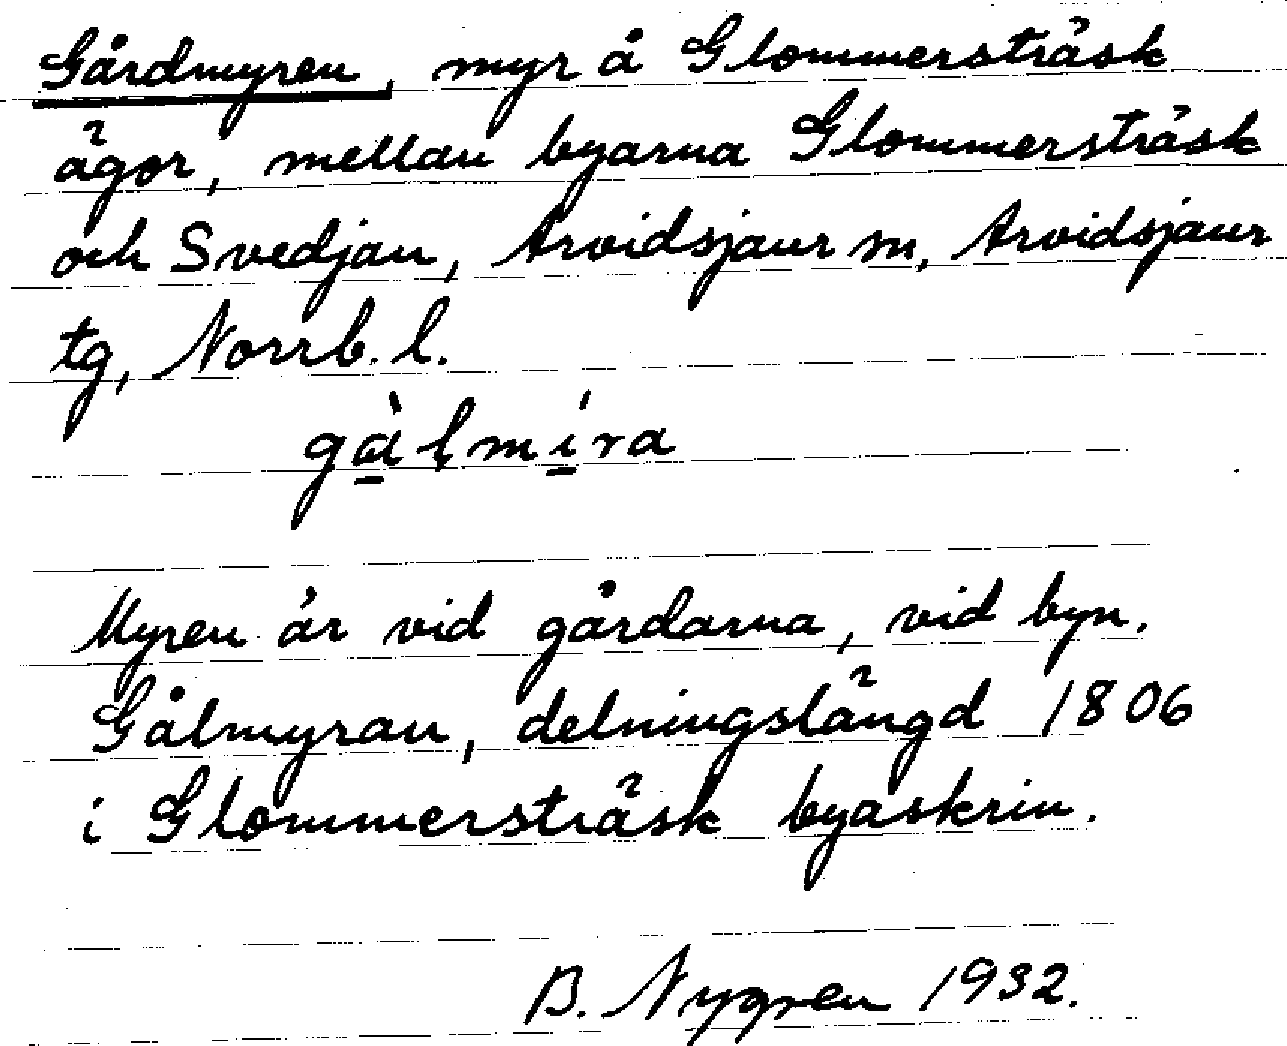 Gårdmyren, myr å Glommersträsk
ägor, mellan byarna Glommersträsk
och Svedjan, Arvidsjaur sn, Arvidsjaur
tg, Norrb. l.
gà̱łmí̱ra
Myren är vid gårdarna, vid byn.
Gålmyran, delningslängd 1806
i Glommersträsk byaskrin.
B. Nygren 1932.